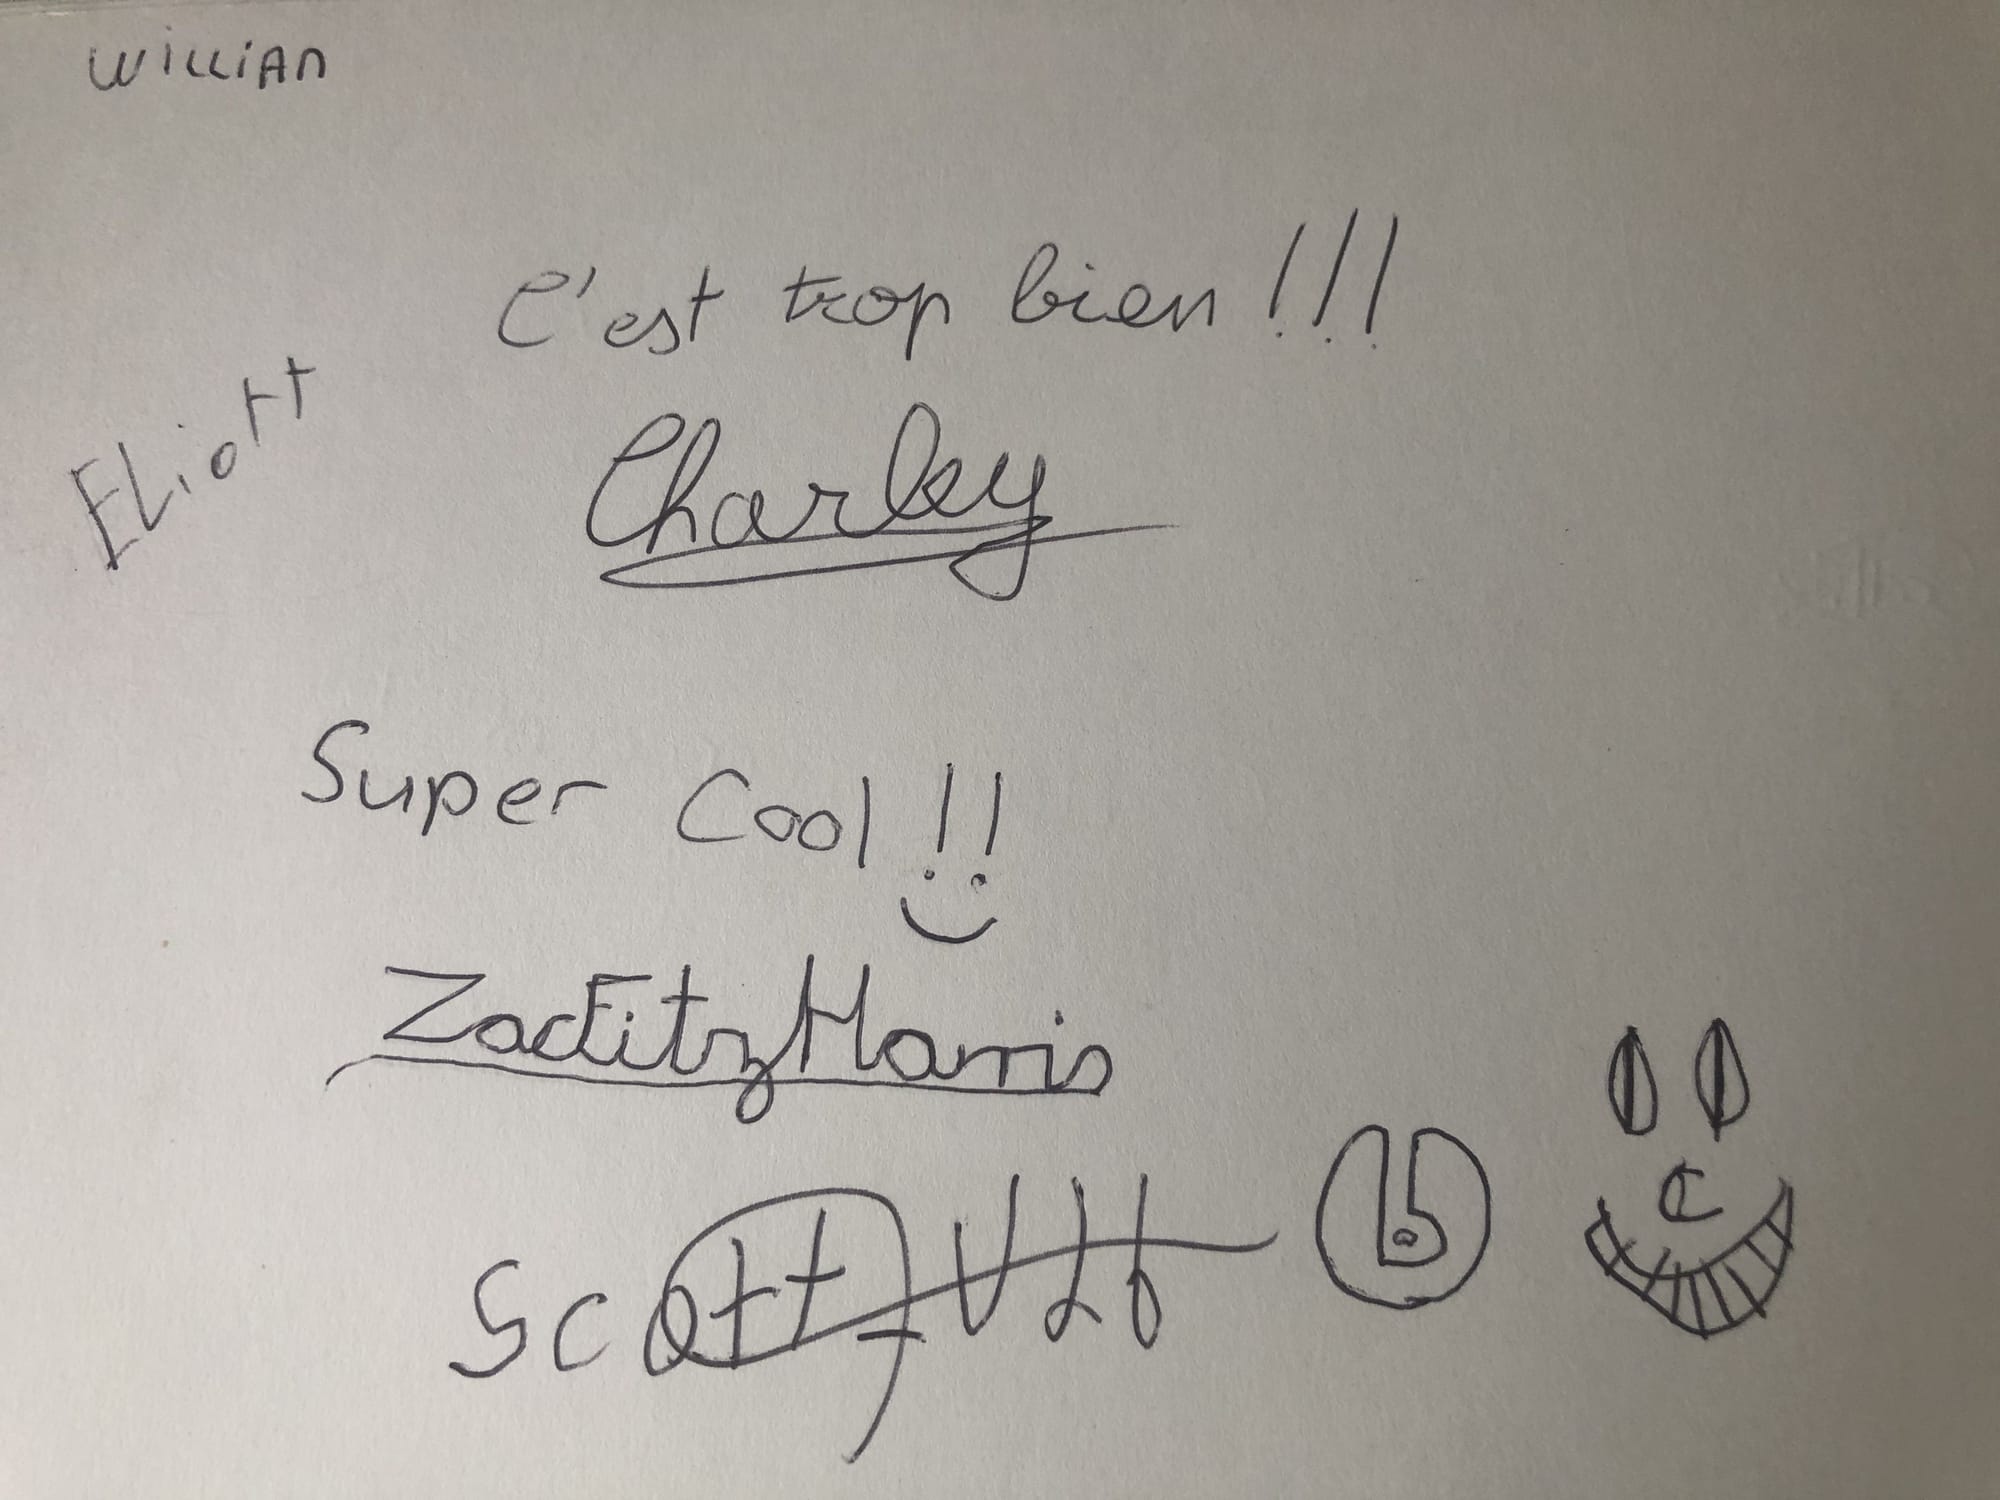 WILLIAN
C'est trop bien !!!
ELiott
Charley
Super Cool !!
ZacFitzHarris
Scott_V26